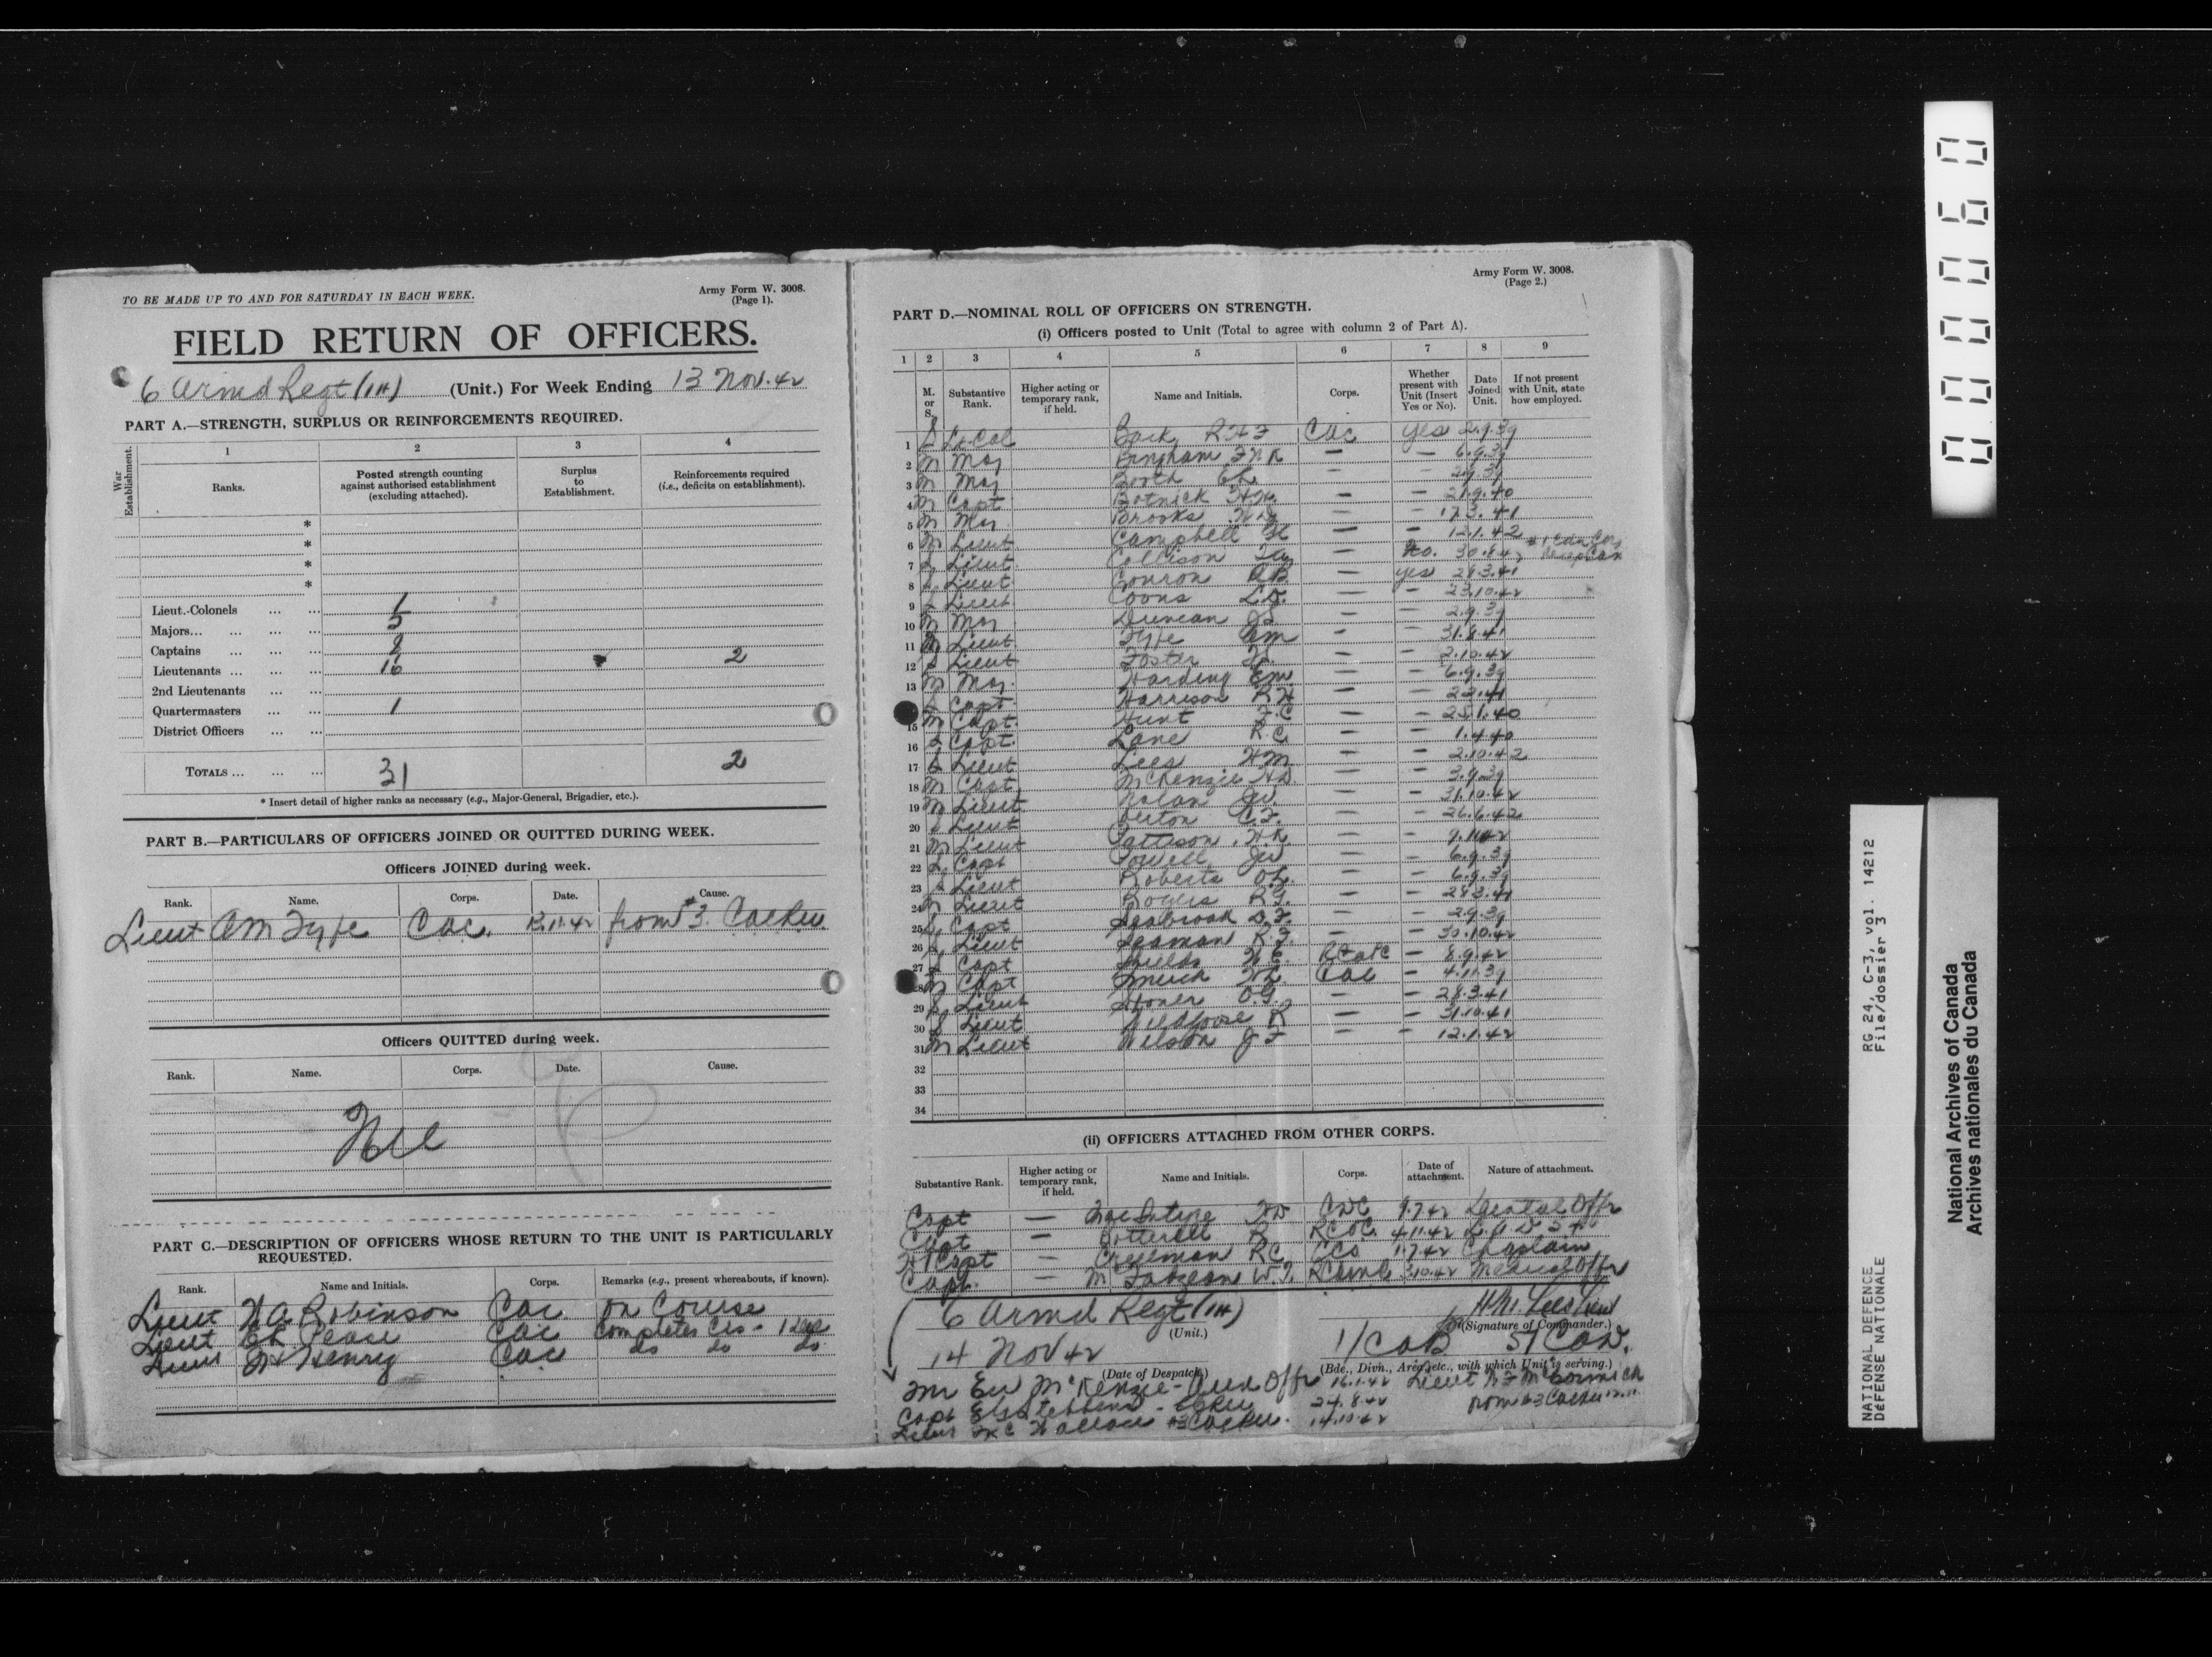 TO BE MADE UP TO AND FOR SATURDAY IN EACH WEEK.
Army Form W. 3008.
(Page 1).
FIELD RETURN OF OFFICERS.
6 Armd Regt (1H) (Unit.) For Week Ending 13 Nov. 42
PART A.—STRENGTH, SURPLUS OR REINFORCEMENTS REQUIRED.
War Establishment.
1 2 3 4
Ranks.
Posted strength counting against authorised establishment (excluding attached).
Surplus to Establishment.
Reinforcements required (i.e., deficits on establishment).
*
*
*
*
Lieut.-Colonels ... ... 1
Majors... ... ... 5
Captains ... ... ... 8
Lieutenants ... ... ... 16 2
2nd Lieutenants ... ...
Quartermasters ... ... 1
District Officers ... ...
TOTALS ... ... ... 31 2
* Insert detail of higher ranks as necessary (e.g., Major-General, Brigadier, etc.).
PART B.—PARTICULARS OF OFFICERS JOINED OR QUITTED DURING WEEK.
Officers JOINED during week.
Rank. Name. Corps. Date. Cause.
Lieut AM Fyfe CAC. 12.11.42 from #3. CACRU
Officers QUITTED during week.
Rank. Name. Corps. Date. Cause.
Nil
PART C.—DESCRIPTION OF OFFICERS WHOSE RETURN TO THE UNIT IS PARTICULARLY REQUESTED.
Rank. Name and Initials. Corps. Remarks (e.g., present whereabouts, if known).
Lieut Robinson CAC on Course
Lieut Pease CAC Completes
Lieut Henry CAC do do do
Army Form W. 3008.
(Page 2.)
PART D.—NOMINAL ROLL OF OFFICERS ON STRENGTH.
(i) Officers posted to Unit (Total to agree with column 2 of Part A).
1 2 3 4 5 6 7 8 9
M. or S.
Substantive Rank.
Higher acting or temporary rank, if held.
Name and Initials.
Corps.
Whether present with Unit (Insert Yes or No).
Date Joined Unit.
If not present with Unit, state how employed.
1 S Lt.Col R CAC Yes 2.9.39
2 M Maj Bingham — — 6.9.39
3 M Maj Booth — — 2.9.39
4 M Capt Botnick — — 21.9.40
5 M Maj Brooks — — 17.3.41
6 M Lieut Campbell — — 12.1.42
7 S Lieut Collison — No. 30.8.42
8 S Lieut Conron — Yes 28.3.41
9 S Lieut Coons — — 23.10.42
10 M Maj Duncan — — 2.9.39
11 M Lieut Fyfe AM — — 31.8.41
12 S Lieut Foster — — 2.10.42
13 M Maj. Harding EM — — 6.9.39
S Capt Harrison RH — —
15 M Capt Hunt F.C — — 25.1.40
16 S Capt. Lane R.C. — — 1.4.40
17 S Lieut Lees HM — — 2.10.42
18 M Capt McKenzie — — 3.9.39
19 M Lieut Nolan — — 31.10.42
20 S Lieut — — 26.6.42
21 M Lieut Pattison — —
22 S Capt Powell JW — — 6.9.39
23 S Lieut Roberts — — 6.9.39
24 M Lieut Rogers — — 28.3.41
25 S Capt Seabrook — — 2.9.39
26 S Lieut Seaman R.F. — 30.10.42
27 S Capt Shields RCAPC — 8.9.42
28 M Capt Smuck CAC — 4.11.39
29 S Lieut Stoner O.G. — — 28.3.41
30 S Lieut Wildgoose R — — 31.10.41
31 M Lieut Wilson JF — — 12.1.42
32
33
34
(ii) OFFICERS ATTACHED FROM OTHER CORPS.
Substantive Rank.
Higher acting or temporary rank, if held.
Name and Initials.
Corps.
Date of attachment.
Nature of attachment.
Capt — MacIntyre CDC 9.7.42 Dental Offr
Capt — Botterell R RCOC 4.11.42
H/Capt — RC CCS 1.7.42 Chaplain
Capt. — RCAMC 3.10.42 Medical Offr
6 Armd Regt (1H)
(Unit.)
H.M. Lees Lieut
(Signature of Commander.)
14 Nov 42
(Date of Despatch)
1/CAB 5/CAD.
(Bde., Divn., Area, etc., with which Unit is serving.)
McKenzie - Aux Offr 16.1.42 Lieut McCormick
Capt Stebbins 24.8.42 from #3 CACRU
Lieut Wallace #3 CACRU. 14.10.42
000060
RG 24, C-3, vol. 14212
File/dossier 3
NATIONAL DEFENCE
DEFENSE NATIONALE
National Archives of Canada
Archives nationales du Canada